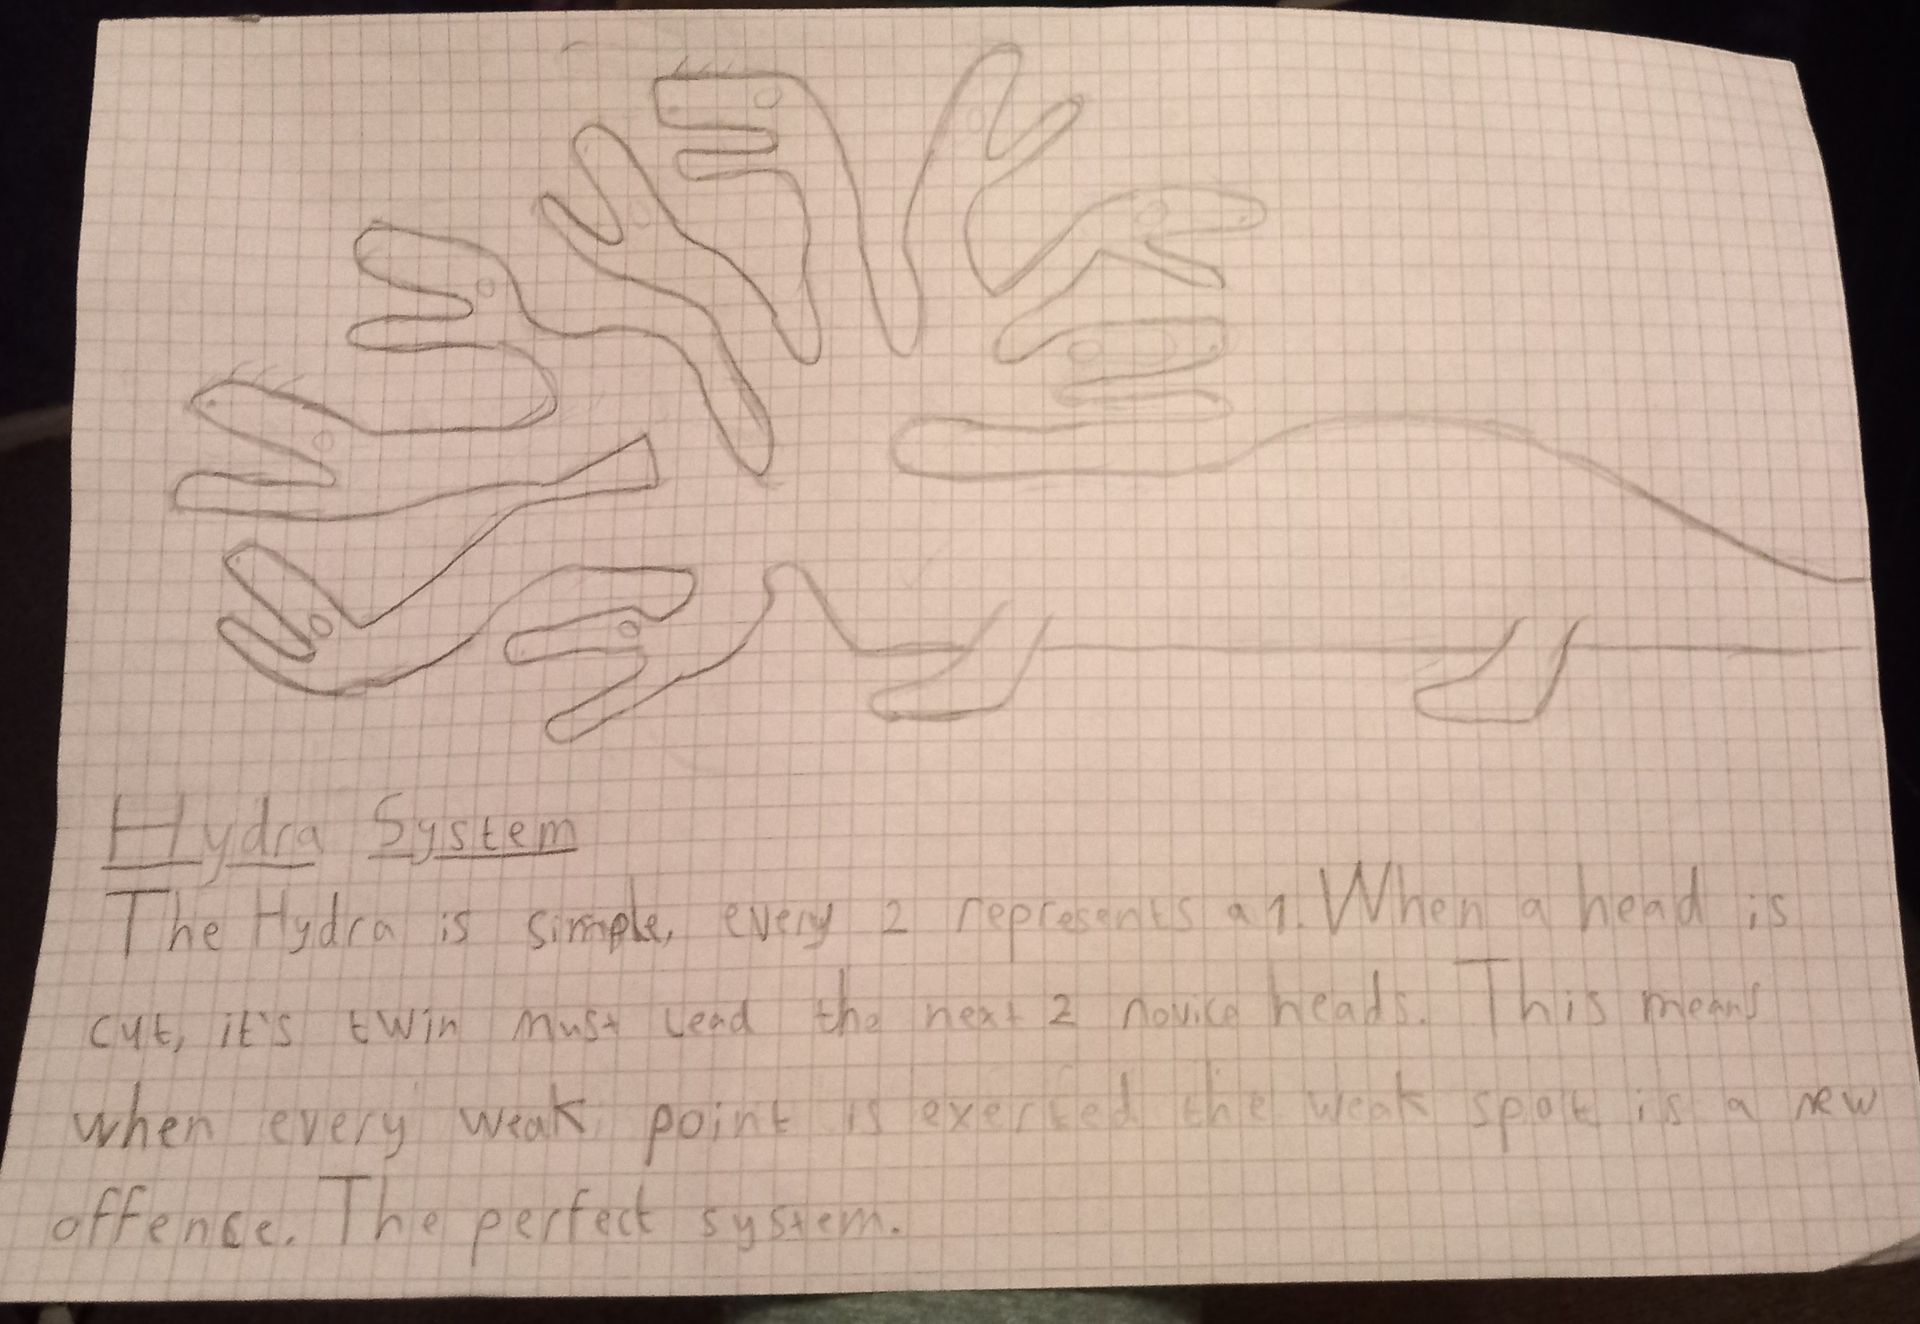 Hydra System
The Hydra is simple, every 2 represents a 1. When a head is
cut, it's twin must lead the next 2 novice heads. This means
when every weak point is exerted the weak spot is a new
offence. The perfect system.